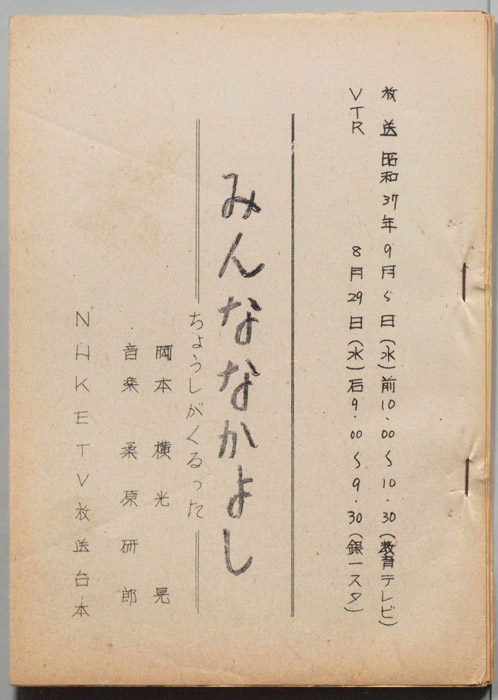 放送 昭和37年9月5日(水)前10.00〜10.30(教育テレビ)
VTR 8月29日(水)后9.00〜9.30(銀一スタ)
みんななかよし
ちょうしがくるった
岡本 横光 晃
音楽 桑原研郎
NHKETV放送台本